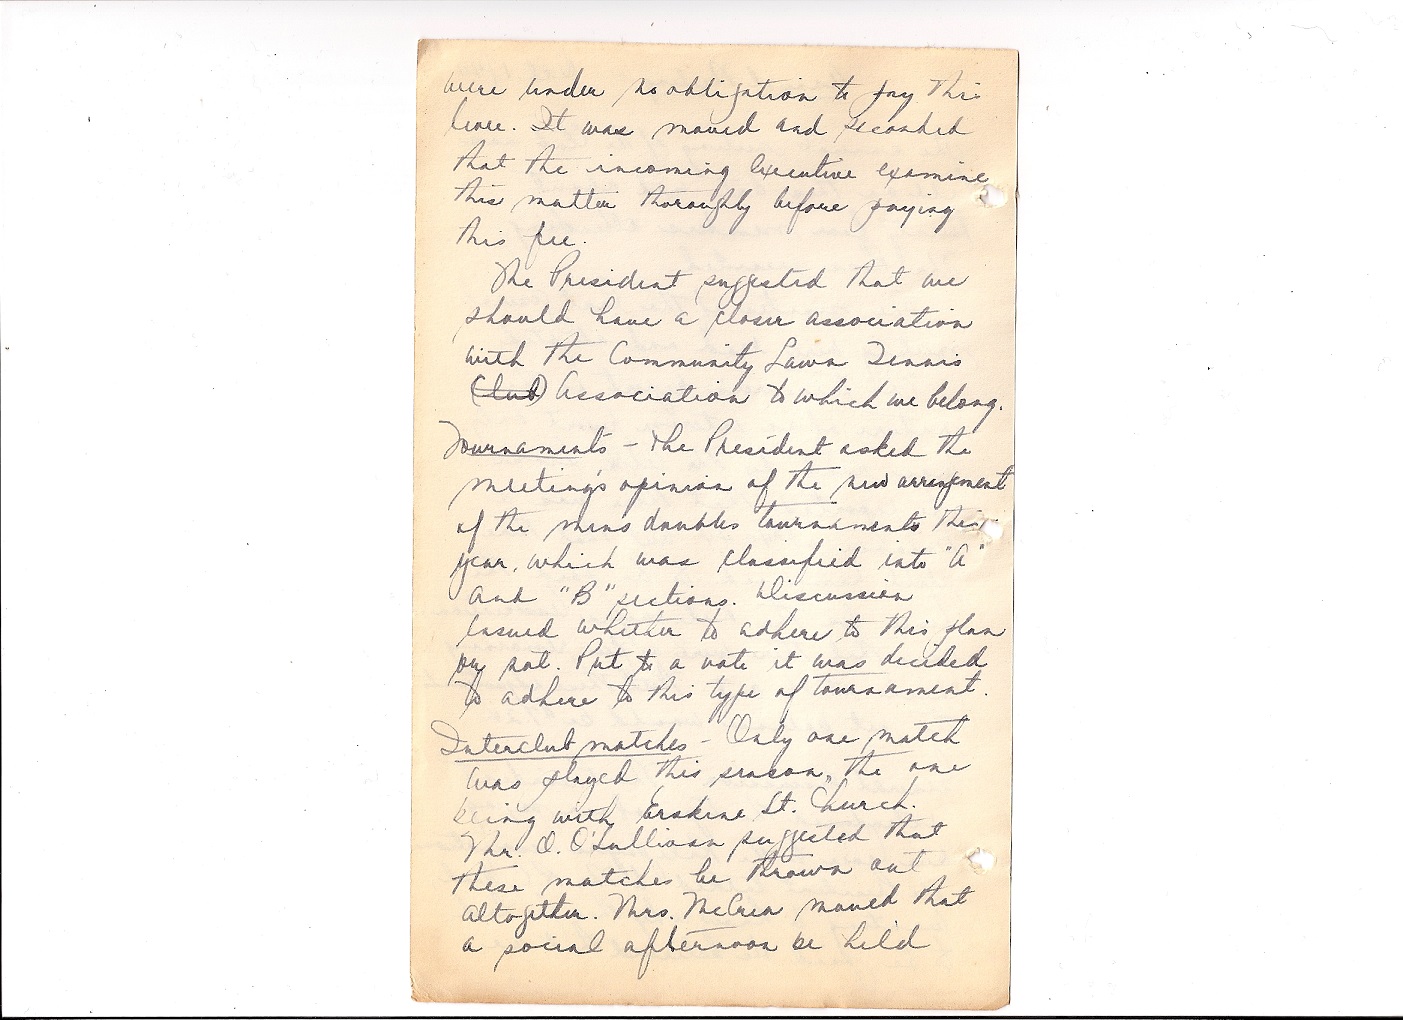 were under no obligation to pay this
levee. It was moved and seconded
that the incoming executive examine
this matter thoroughly before paying
this fee.
The President suggested that we
should have a closer association
with the Community Lawn Tennis
(Club) Association to which we belong.
Tournaments - The President asked the
meeting's opinion of the new arrangement
of the mens doubles tournaments this
year, which was classified into "A"
and "B" sections. Discussion
ensued whether to adhere to this plan
or not. Put to a vote it was decided
to adhere to this type of tournament.
Interclub matches - Only one match
was played this season, the one
being with Erskine St. Church.
Mr. O. O'Sullivan suggested that
these matches be thrown out
altogether. Mrs. McCrea moved that
a social afternoon be held